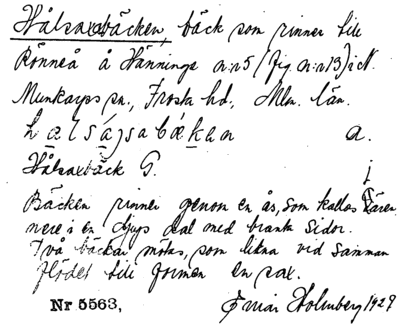 Hålsaxabäcken, bäck som rinner till
Rönneå å Hänninge n:r 5 (fig n:r 13) i N.
Munkarps sn., Frosta hd, Mlm. län.
a.
Hålsaxbäck G.
Bäcken rinner genom en ås, som kallas
nere i en djup dal med branta sidor.
Två bäckar mötas, som likna vid samman
flödet till formen en sax.
Nr 5563, Ingvar Holmberg 1929